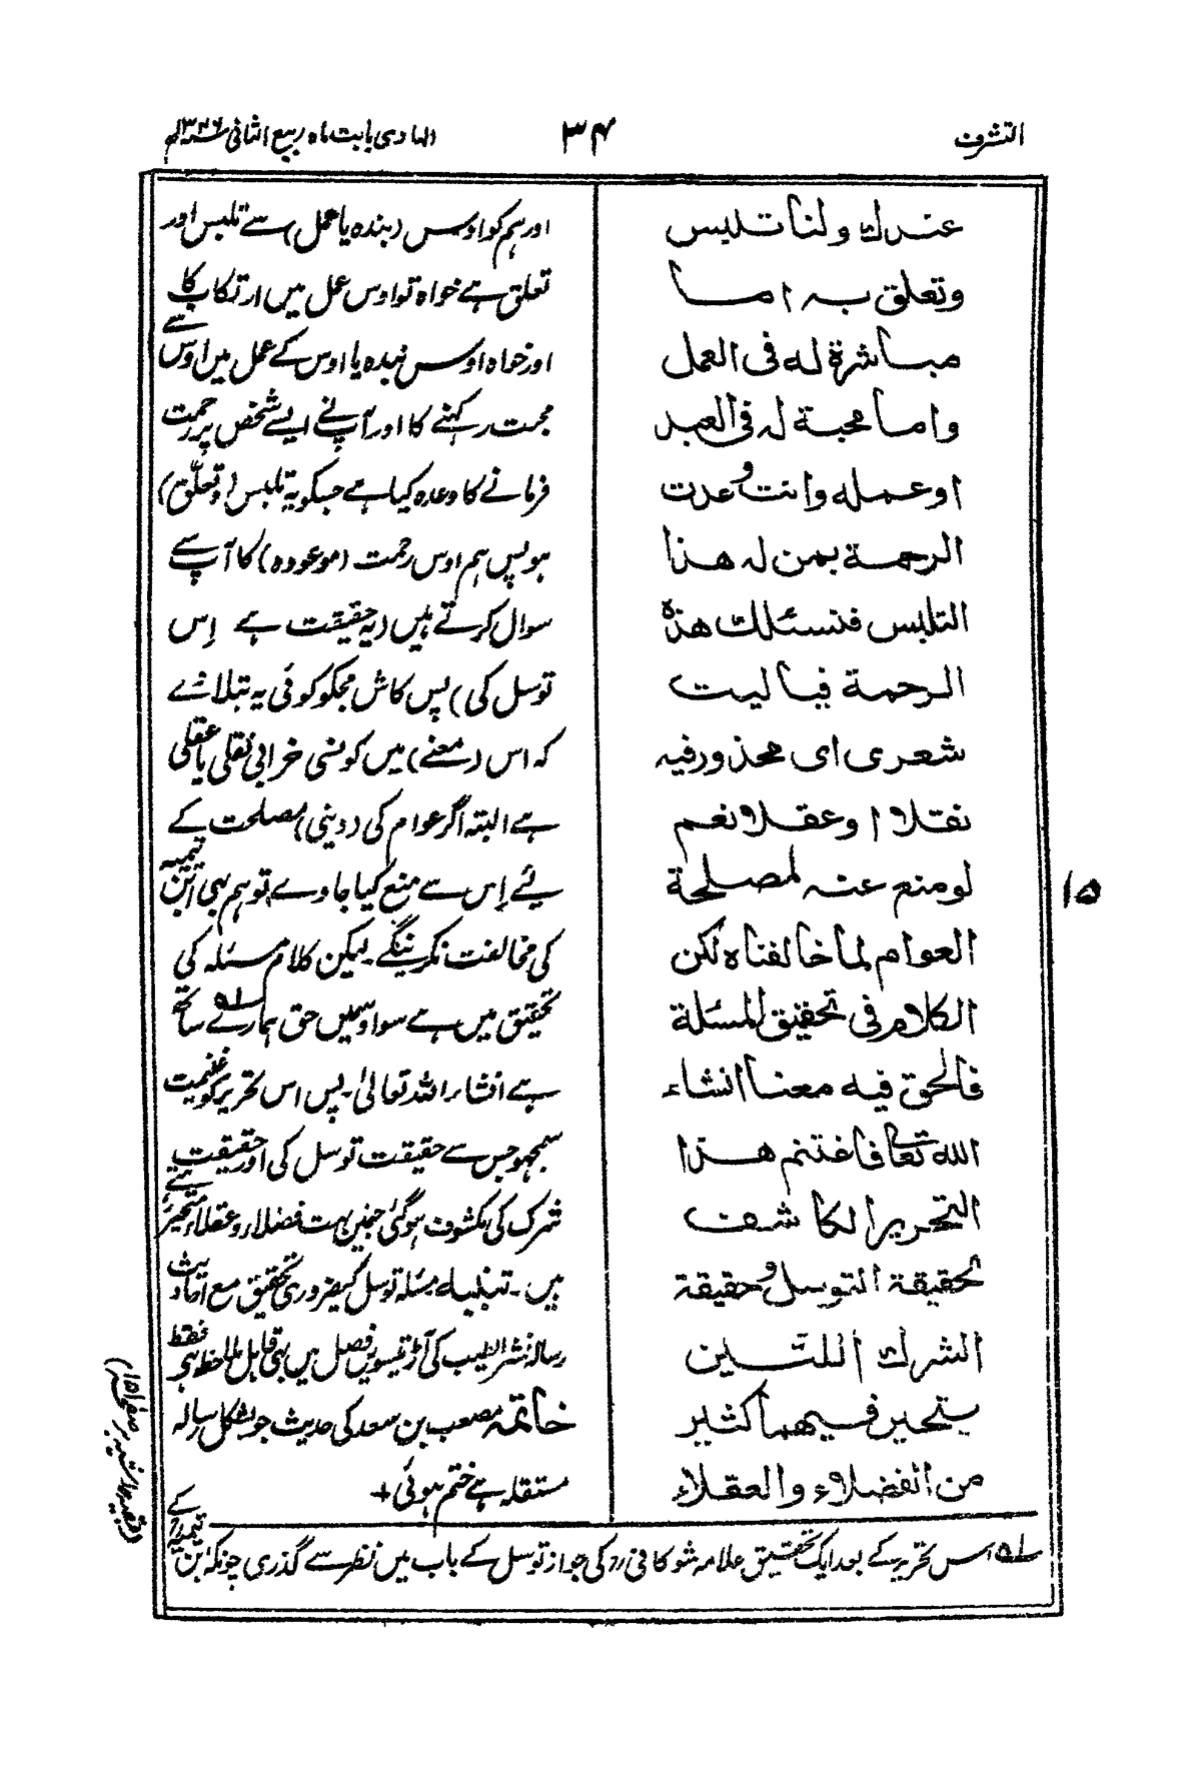 التشرف
۳۴
الہادی بابت ماہ ربیع الثانی ۱۳۴۶ھ
عندك ولنا تلبس
وتعلق به اما
مباشرة له فى العمل
واما محبة له فى العبد
او عمله وانت وعدت
الرحمة بمن له هذا
التلبس فنسئلك هذه
الرحمة فيا ليت
شعرى اى محذور فيه
نقلا او عقلا نعم
لو منع عنه لمصلحة
العوام لما خالفناه لكن
الكلام فى تحقيق المسئلة
فالحق فيه معنا انشاء
الله تعالى فاغتنم هذا
التحرير الكاشف
لحقيقة التوسل وحقيقة
الشرك اللتين
يتحير فيهما كثير
من الفضلاء والعقلاء
اور ہم کو اوس (بندہ یا عمل) سے تلبس اور
تعلق ہے خواہ تو اوس عمل میں ارتکاب کا
اور خواہ اوس بندہ یا اوس کے عمل میں اوس سے
محبت رکہنے کا اور آپنے ایسے شخص پر رحمت
فرمانے کا وعدہ کیا ہے جسکو یہ تلبس (و تعلق)
ہو پس ہم اوس رحمت (موعودہ) کا آپ سے
سوال کرتے ہیں (یہ حقیقت ہے اِس
توسل کی) پس کاش مجکو کوئی یہ بتلائے
کہ اس (معنے) میں کونسی خرابی نقلی یا عقلی
ہے البتہ اگر عوام کی (دینی) مصلحت کے
لئے اِس سے منع کیا جاوے تو ہم بہی ابن تیمیہ
کی مخالفت نکرینگے۔ لیکن کلام مسئلہ کی
تحقیق میں ہے سو اوسمیں حق ہمارے ۵۱ ساتھ
ہے انشاء اللہ تعالیٰ۔ پس اس تحریر کو غنیمت
سمجہو جس سے حقیقت توسل کی اور حقیقت
شرک کی مکشوف ہو گئی جنمیں بہت فضلاء و عقلاء متحیر ہوئے
ہیں۔ تنبیہ مسئلہ توسل کی ضروری تحقیق مع احادیث
رسالہ نشر الطیب کی اڑتیسویں فصل میں بہی قابل ملاحظہ ہے فقط
خاتمہ مصعب بن سعد کی حدیث جو بشکل رسالہ
مستقلہ ہے ختم ہوئی +
۵۱ اس تحریر کے بعد ایک تحقیق علامہ شوکانی رح کی جواز توسل کے باب میں نظر سے گذری چونکہ ابن تیمیہ رح کے
۱۵
(بقیہ حاشیہ بر صفحہ ۱۵)